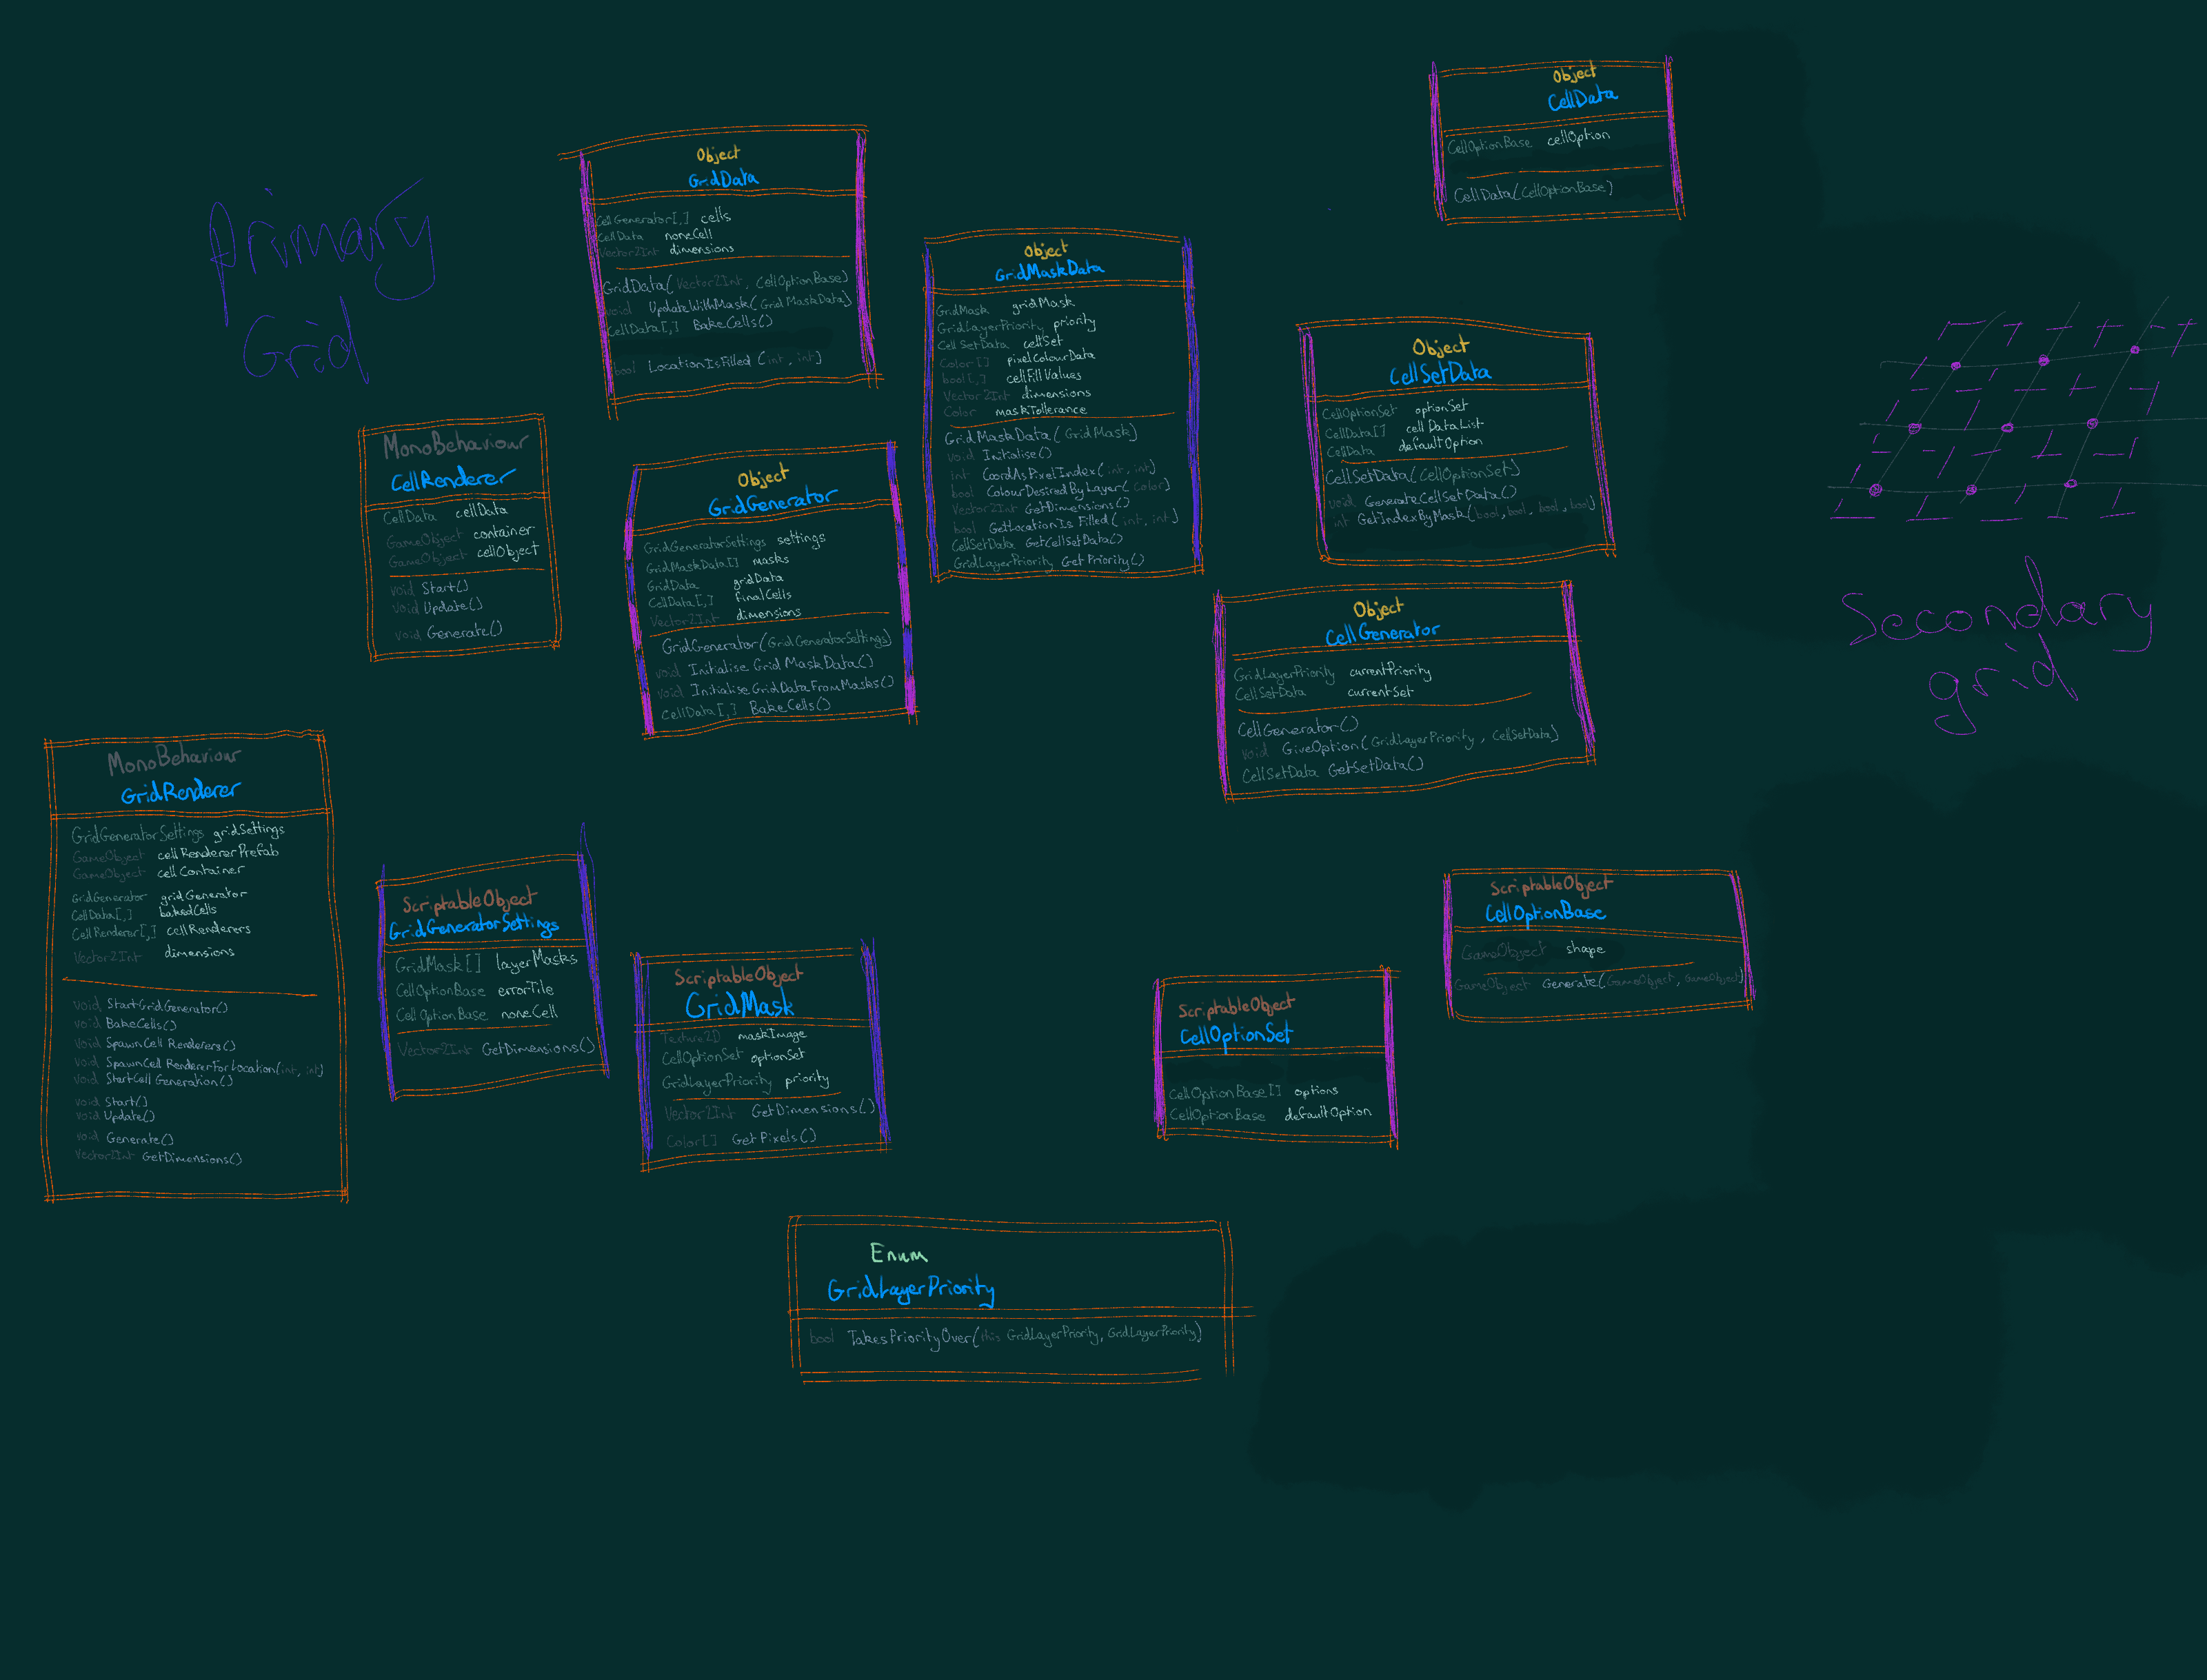 Primary
Grid
Object
GridData
CellGenerator[,] cells
CellData noneCell
Vector2Int dimensions
GridData(Vector2Int, CellOptionBase)
void UpdateWithMask(GridMaskData)
CellData[,] BakeCells()
bool LocationIsFilled(int, int)
Object
CellData
CellOptionBase cellOption
CellData(CellOptionBase)
Object
GridMaskData
GridMask gridMask
GridLayerPriority priority
CellSetData cellSet
Color[] pixelColourData
bool[,] cellFillValues
Vector2Int dimensions
Color maskTollerance
GridMaskData(GridMask)
void Initialise()
int CoordAsPixelIndex(int, int)
bool ColourDesiredByLayer(color)
Vector2Int GetDimensions()
bool GetLocationIsFilled(int, int)
CellSetData GetCellSetData()
GridLayerPriority GetPriority()
Object
CellSetData
CellOptionSet optionSet
CellData[] cellDataList
CellData defaultOption
CellSetData(CellOptionSet)
void GenerateCellSetData()
int GetIndexByMask(bool, bool, bool, bool)
Secondary
grid
MonoBehaviour
CellRenderer
CellData cellData
GameObject container
GameObject cellObject
void Start()
void Update()
void Generate()
Object
GridGenerator
GridGeneratorSettings settings
GridMaskData[] masks
GridData gridData
CellData[,] finalCells
Vector2Int dimensions
GridGenerator(GridGeneratorSettings)
void InitialiseGridMaskData()
void InitialiseGridDataFromMasks()
CellData[,] BakeCells()
Object
CellGenerator
GridLayerPriority currentPriority
CellSetData currentSet
CellGenerator()
void GiveOption(GridLayerPriority, CellSetData)
CellSetData GetSetData()
MonoBehaviour
GridRenderer
GridGeneratorSettings gridSettings
GameObject cellRendererPrefab
GameObject cellContainer
GridGenerator gridGenerator
CellData[,] bakedCells
CellRenderer[,] cellRenderers
Vector2Int dimensions
void StartGridGenerator()
void BakeCells()
void SpawnCellRenderers()
void SpawnCellRendererForLocation(int, int)
void StartCellGeneration()
void Start()
void Update()
void Generate()
Vector2Int GetDimensions()
ScriptableObject
GridGeneratorSettings
GridMask[] layerMasks
CellOptionBase errorTile
CellOptionBase noneCell
Vector2Int GetDimensions()
ScriptableObject
GridMask
Texture2D maskImage
CellOptionSet optionSet
GridLayerPriority priority
Vector2Int GetDimensions()
Color[] GetPixels()
ScriptableObject
CellOptionSet
CellOptionBase[] options
CellOptionBase defaultOption
ScriptableObject
CellOptionBase
GameObject shape
GameObject Generate(GameObject, GameObject)
Enum
GridLayerPriority
bool TakesPriorityOver(this GridLayerPriority, GridLayerPriority)